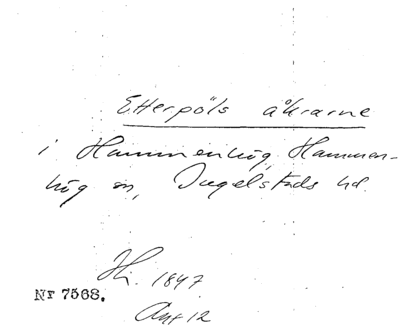 Etterpöls åkrarne
i Hammenhög, Hammen-
hög sn, Ingelstads hd.
Hi. 1847
Nr 7568.
Akt 12